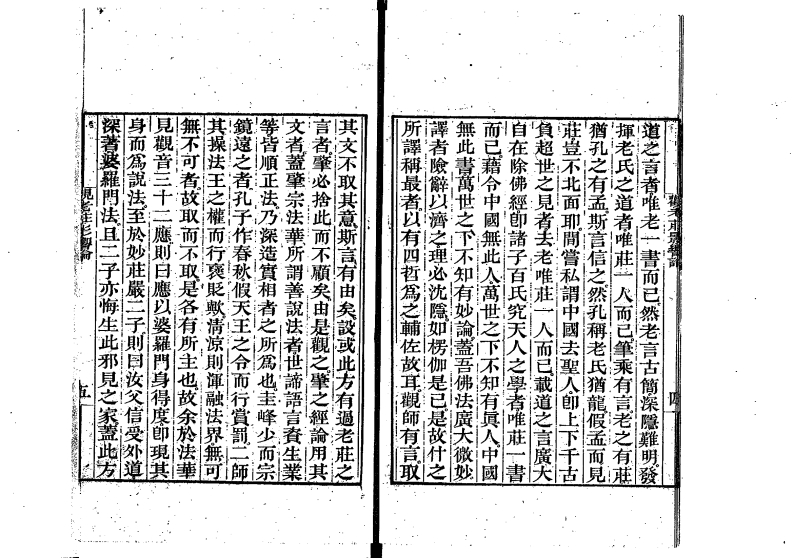 道之言者唯老一書而已然老言古簡深隱難明發
揮老氏之道者唯莊一人而已筆乘有言老之有莊
猶孔之有孟斯言信之然孔稱老氏猶龍假孟而見
莊豈不北面耶閒嘗私謂中國去聖人卽上下千古
負超世之見者去老唯莊一人而已載道之言廣大
自在除佛經卽諸子百氏究天人之學者唯莊一書
而已藉令中國無此人萬世之下不知有眞人中國
無此書萬世之下不知有妙論蓋吾佛法廣大微妙
譯者險辭以濟之理必沈隱如楞伽是已是故什之
所譯稱最者以有四哲爲之輔佐故耳觀師有言取
觀老莊影響論
四
其文不取其意斯言有由矣設或此方有過老莊之
言者肇必捨此而不顧矣由是觀之肇之經論用其
文者蓋肇宗法華所謂善說法者世諦語言資生業
等皆順正法乃深造實相者之所爲也圭峰少而宗
鏡遠之者孔子作春秋假天王之令而行賞罰二師
其操法王之權而行褒貶歟清涼則渾融法界無可
無不可者故取而不取是各有所主也故余於法華
見觀音三十二應則曰應以婆羅門身得度卽現其
身而爲說法至於妙莊嚴二子則曰汝父信受外道
深著婆羅門法且二子亦悔生此邪見之家蓋此方
觀老莊影響論
五